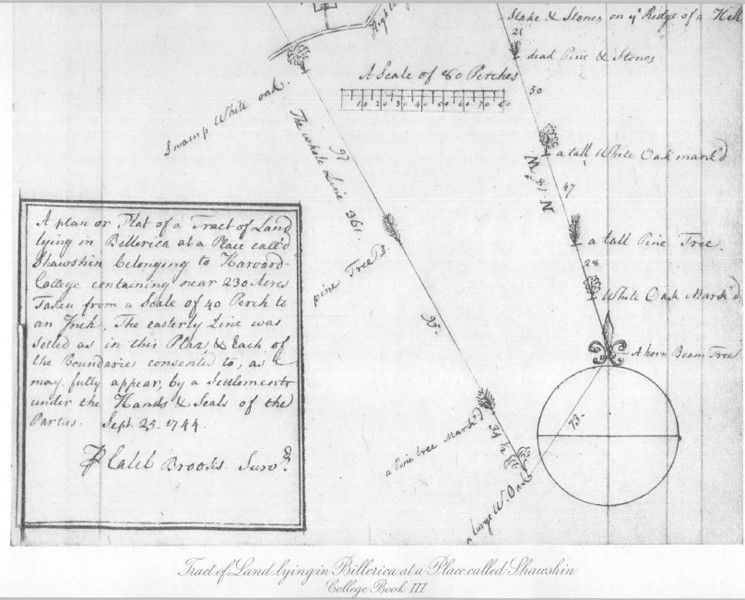 Stake & Stones on yᵉ Ridge of a Hill
21
dead Pine & Stones
A Scale of 80 Perches
10 20 30 40 50 60 70 80
50
Swamp White oak.
The whole Line 361.
97
N 18 W
a tall White Oak mark'd
47
a tall Pine Tree.
28
White Oak Mark'd
pine Tree
95.
A horn Beam Tree
73.
a Pine tree Mark'd
34 ½
a large W. Oak
A plan or Plat of a Tract of Land
lying in Billerica at a Place call'd
Shawshin belonging to Harvard-
College containing near 230 Acres
Taken from a Scale of 40 Perch to
an Inch. The easterly Line was
setled as in this Plan & Each of
the Boundaries consented to, as
may fully appear, by a Settlement
under the Hands & Seals of the
Parties. Sept. 25. 1744.
Caleb Brooks Survʳ.
Tract of Land lying in Billerica at a Place called Shawshin
College Book III